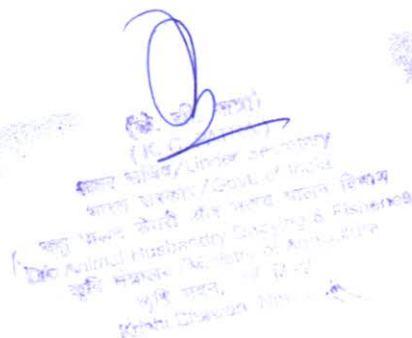 (K. G.
अवर सचिव/Under Secretary
भारत सरकार/Govt. of India
पशु पालन डेयरी और मत्स्य पालन विभाग
D/o Animal Husbandry Dairying & Fisheries
कृषि मंत्रालय/Ministry of Agriculture
कृषि भवन, नई दिल्ली
Krishi Bhawan New